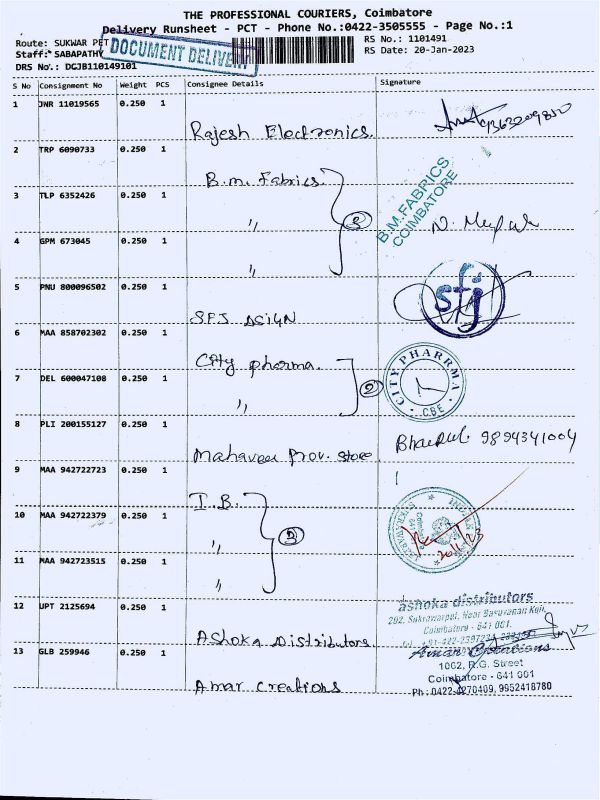 THE PROFESSIONAL COURIERS, Coimbatore
Delivery Runsheet - PCT - Phone No.:0422-3505555 - Page No.:1
Route: SUKWAR PET
RS No.: 1101491
Staff: SABAPATHY
RS Date: 20-Jan-2023
DOCUMENT DELIVERY
DRS No.: DCJB110149101
S No Consignment No Weight PCS Consignee Details Signature
1 JNR 11019565 0.250 1
Rajesh Electronics.
2 TRP 6090733 0.250 1
B.m. Fabrics.
B.M.FABRICS
COIMBATORE
3 TLP 6352426 0.250 1
" 3
4 GPM 673045 0.250 1
"
5 PNU 800096502 0.250 1
SFJ
sfj
6 MAA 858702302 0.250 1
City pharma.
CITY PHARRMA
CBE
7 DEL 600047108 0.250 1
" 2
8 PLI 200155127 0.250 1
Mahaveer Prov. Store
9894341004
9 MAA 942722723 0.250 1
I.B.
10 MAA 942722379 0.250 1
"
11 MAA 942723515 0.250 1
"
12 UPT 2125694 0.250 1
Ashoka Distributors.
ashoka distributors
Coimbatore - 641 001.
13 GLB 259946 0.250 1
Amar Creations
Amar Creations
1002, R.G. Street
Coimbatore - 641 001
Ph : 0422-4270409, 9952418780